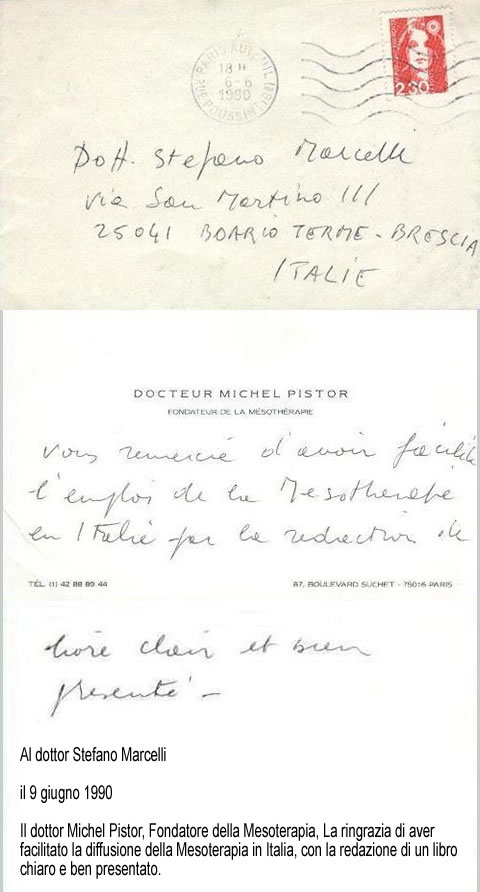 PARIS AUTEUIL (16E)
18 H
6-6
1990
RUE POUSSIN
2.30
Dott. Stefano Marcelli
Via San Martino 111
25041 BOARIO TERME - BRESCIA
ITALIE
DOCTEUR MICHEL PISTOR
FONDATEUR DE LA MÉSOTHÉRAPIE
Vous remercie d'avoir facilité
l'emploi de la Mesotherapie
en Italie par la redaction de
TÉL. (1) 42 88 89 44
87, BOULEVARD SUCHET - 75016 PARIS
livre clair et bien
presenté -
Al dottor Stefano Marcelli
il 9 giugno 1990
Il dottor Michel Pistor, Fondatore della Mesoterapia, La ringrazia di aver
facilitato la diffusione della Mesoterapia in Italia, con la redazione di un libro
chiaro e ben presentato.